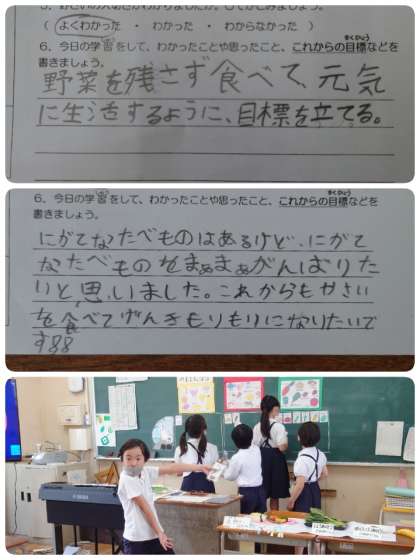 ( よくわかった ・ わかった ・ わからなかった )
6、今日の学習をして、わかったことや思ったこと、これからの目標などを
書きましょう。
野菜を残さず食べて、元気
に生活するように、目標を立てる。
6、今日の学習をして、わかったことや思ったこと、これからの目標などを
書きましょう。
にがてなたべものはあるけど、にがて
なたべものをまぁまぁがんばりた
いと思いました。これからもやさい
を食べてげんきもりもりになりたいで
す